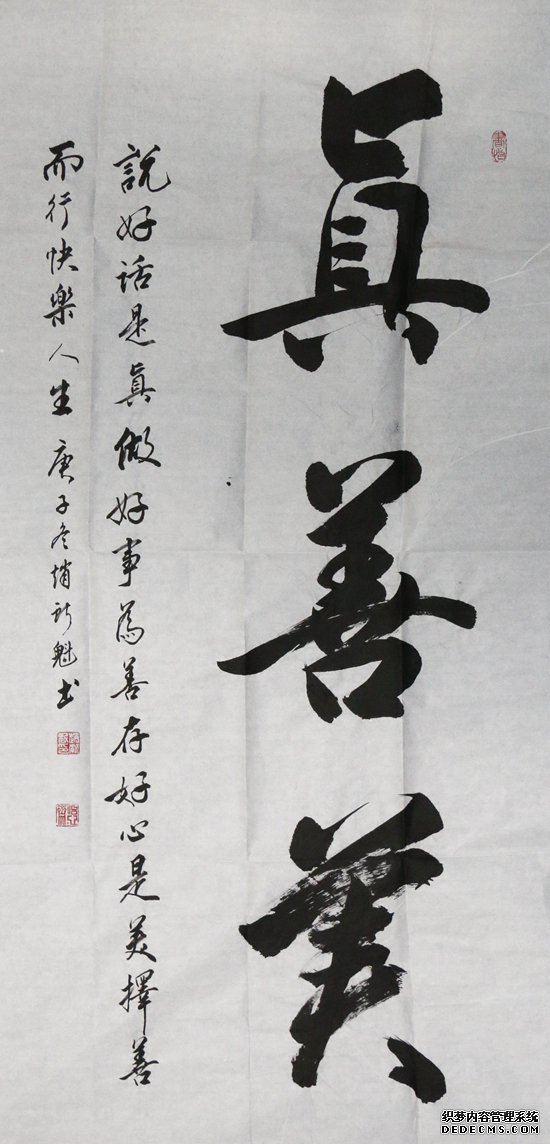 真善美
說好話是真做好事為善存好心是美擇善
而行快樂人生庚子冬 新魁书
织梦内容管理系统
DEDECMS.COM